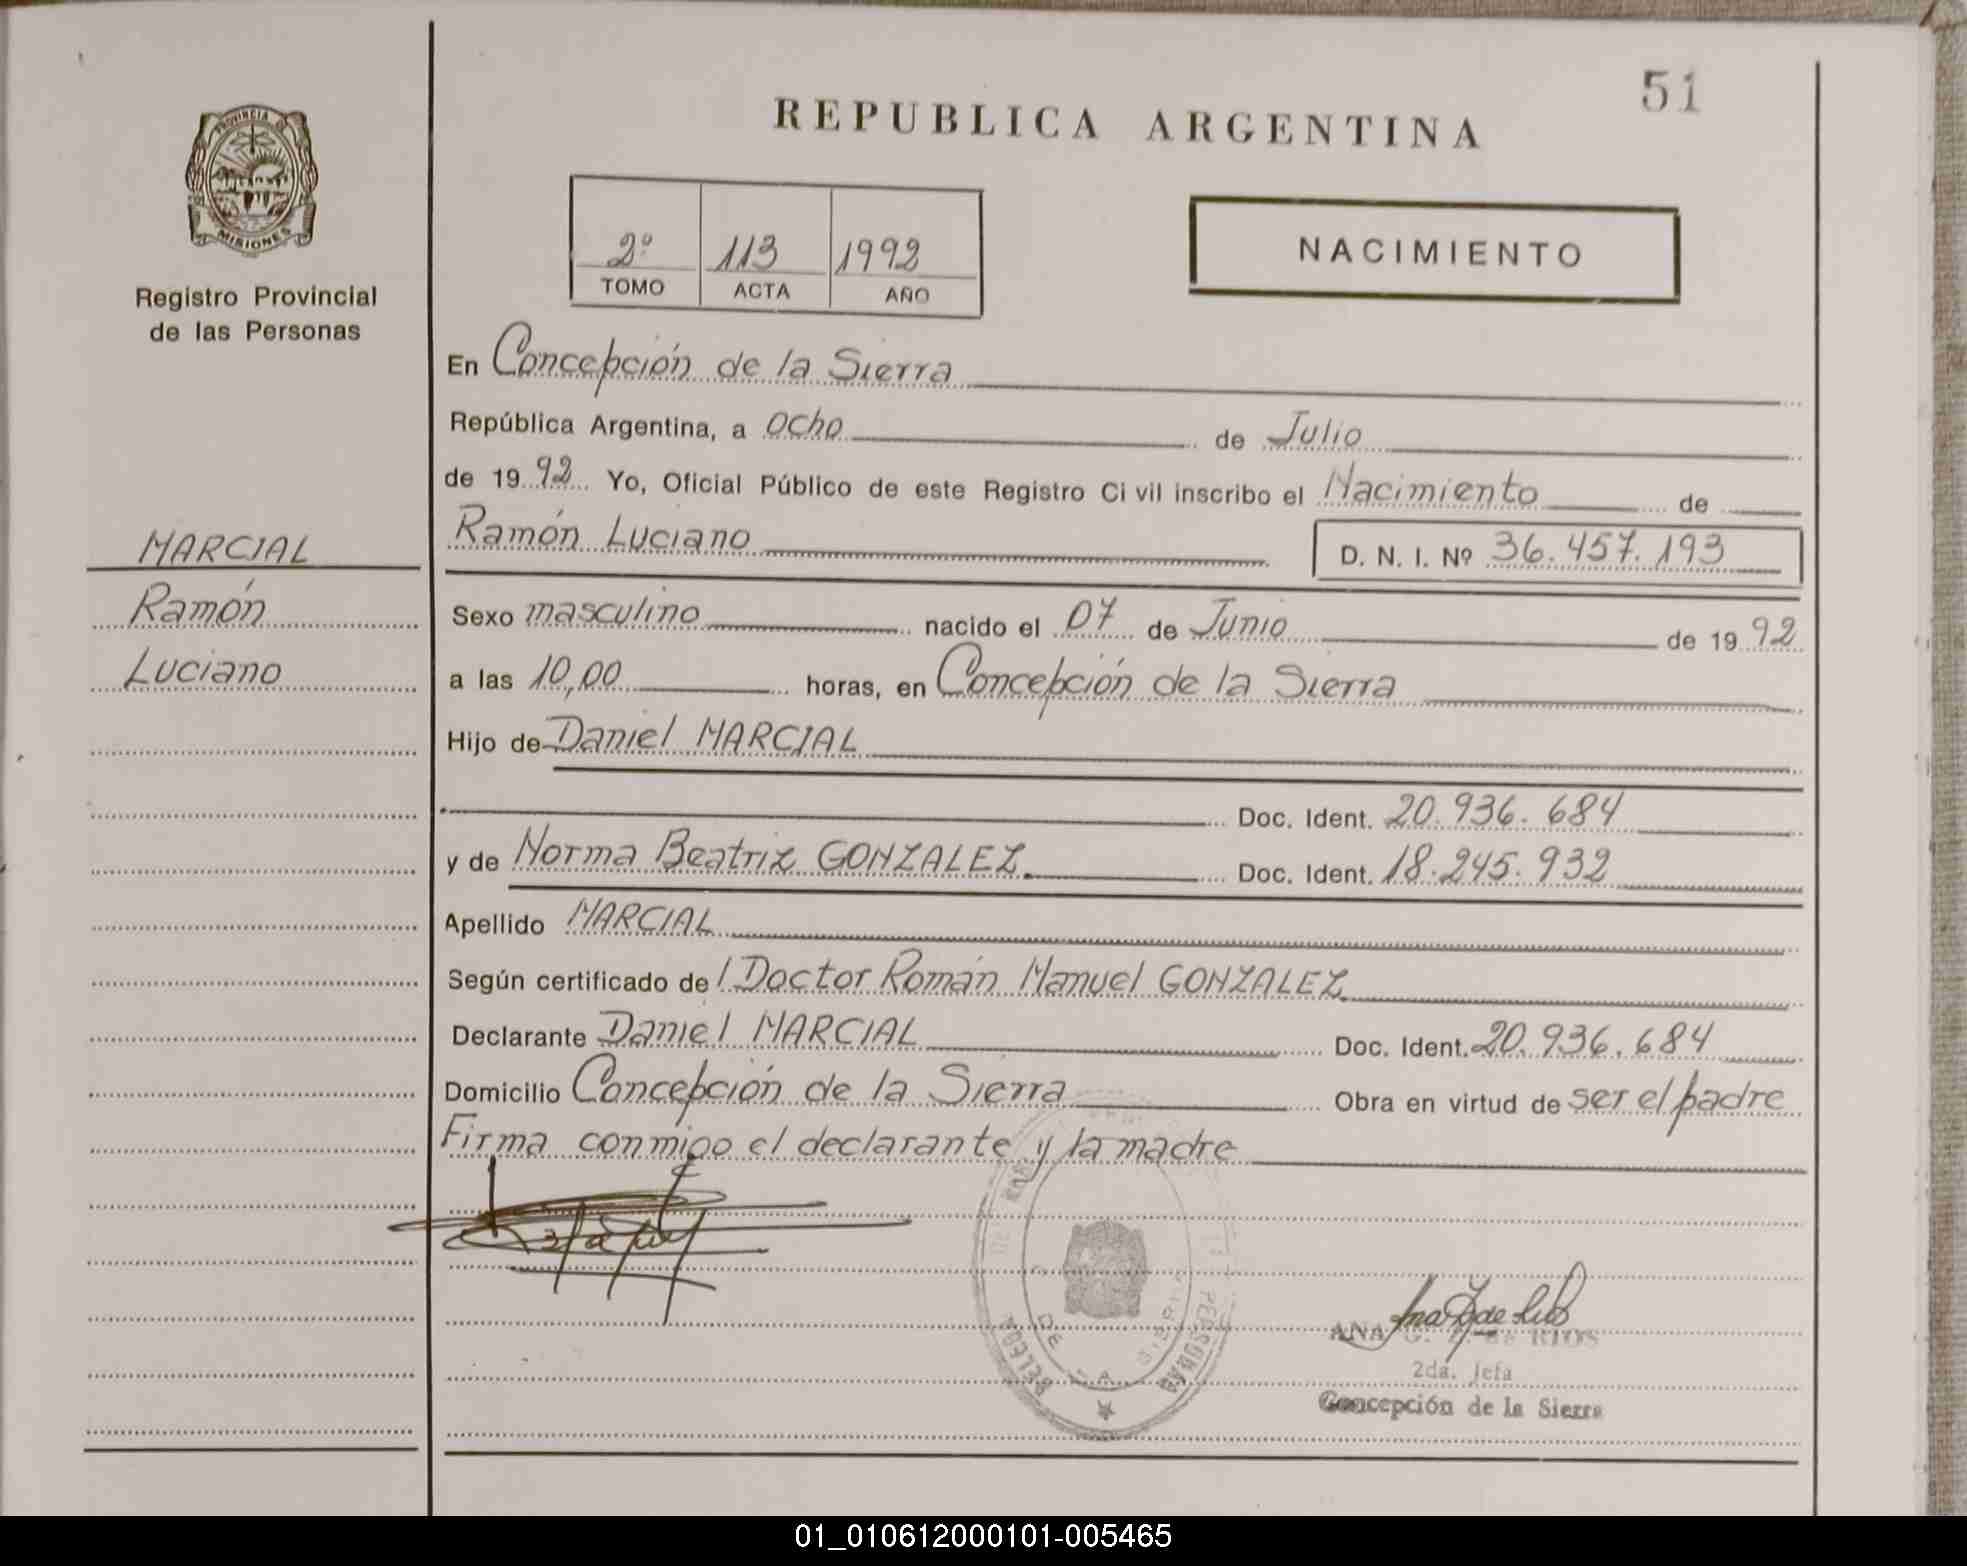 51
REPUBLICA ARGENTINA
PROVINCIA DE
MISIONES
Registro Provincial
de las Personas
2º 113 1992
TOMO ACTA AÑO
NACIMIENTO
En Concepción de la Sierra
República Argentina, a ocho de Julio
de 1992 Yo, Oficial Público de este Registro Ci vil inscribo el Nacimiento de
Ramón Luciano D. N. I. Nº 36.457.193
MARCIAL
Ramón
Luciano
Sexo masculino nacido el 07 de Junio de 1992
a las 10,00 horas, en Concepción de la Sierra
Hijo de Daniel MARCIAL
Doc. Ident. 20.936.684
y de Norma Beatriz GONZALEZ Doc. Ident. 18.245.932
Apellido MARCIAL
Según certificado de l Doctor Román Manuel GONZALEZ
Declarante Daniel MARCIAL Doc. Ident. 20.936.684
Domicilio Concepción de la Sierra Obra en virtud de ser el padre
Firma conmigo el declarante y la madre
ANA G. DE RIOS
2da. Jefa
Concepción de la Sierra
01_010612000101-005465